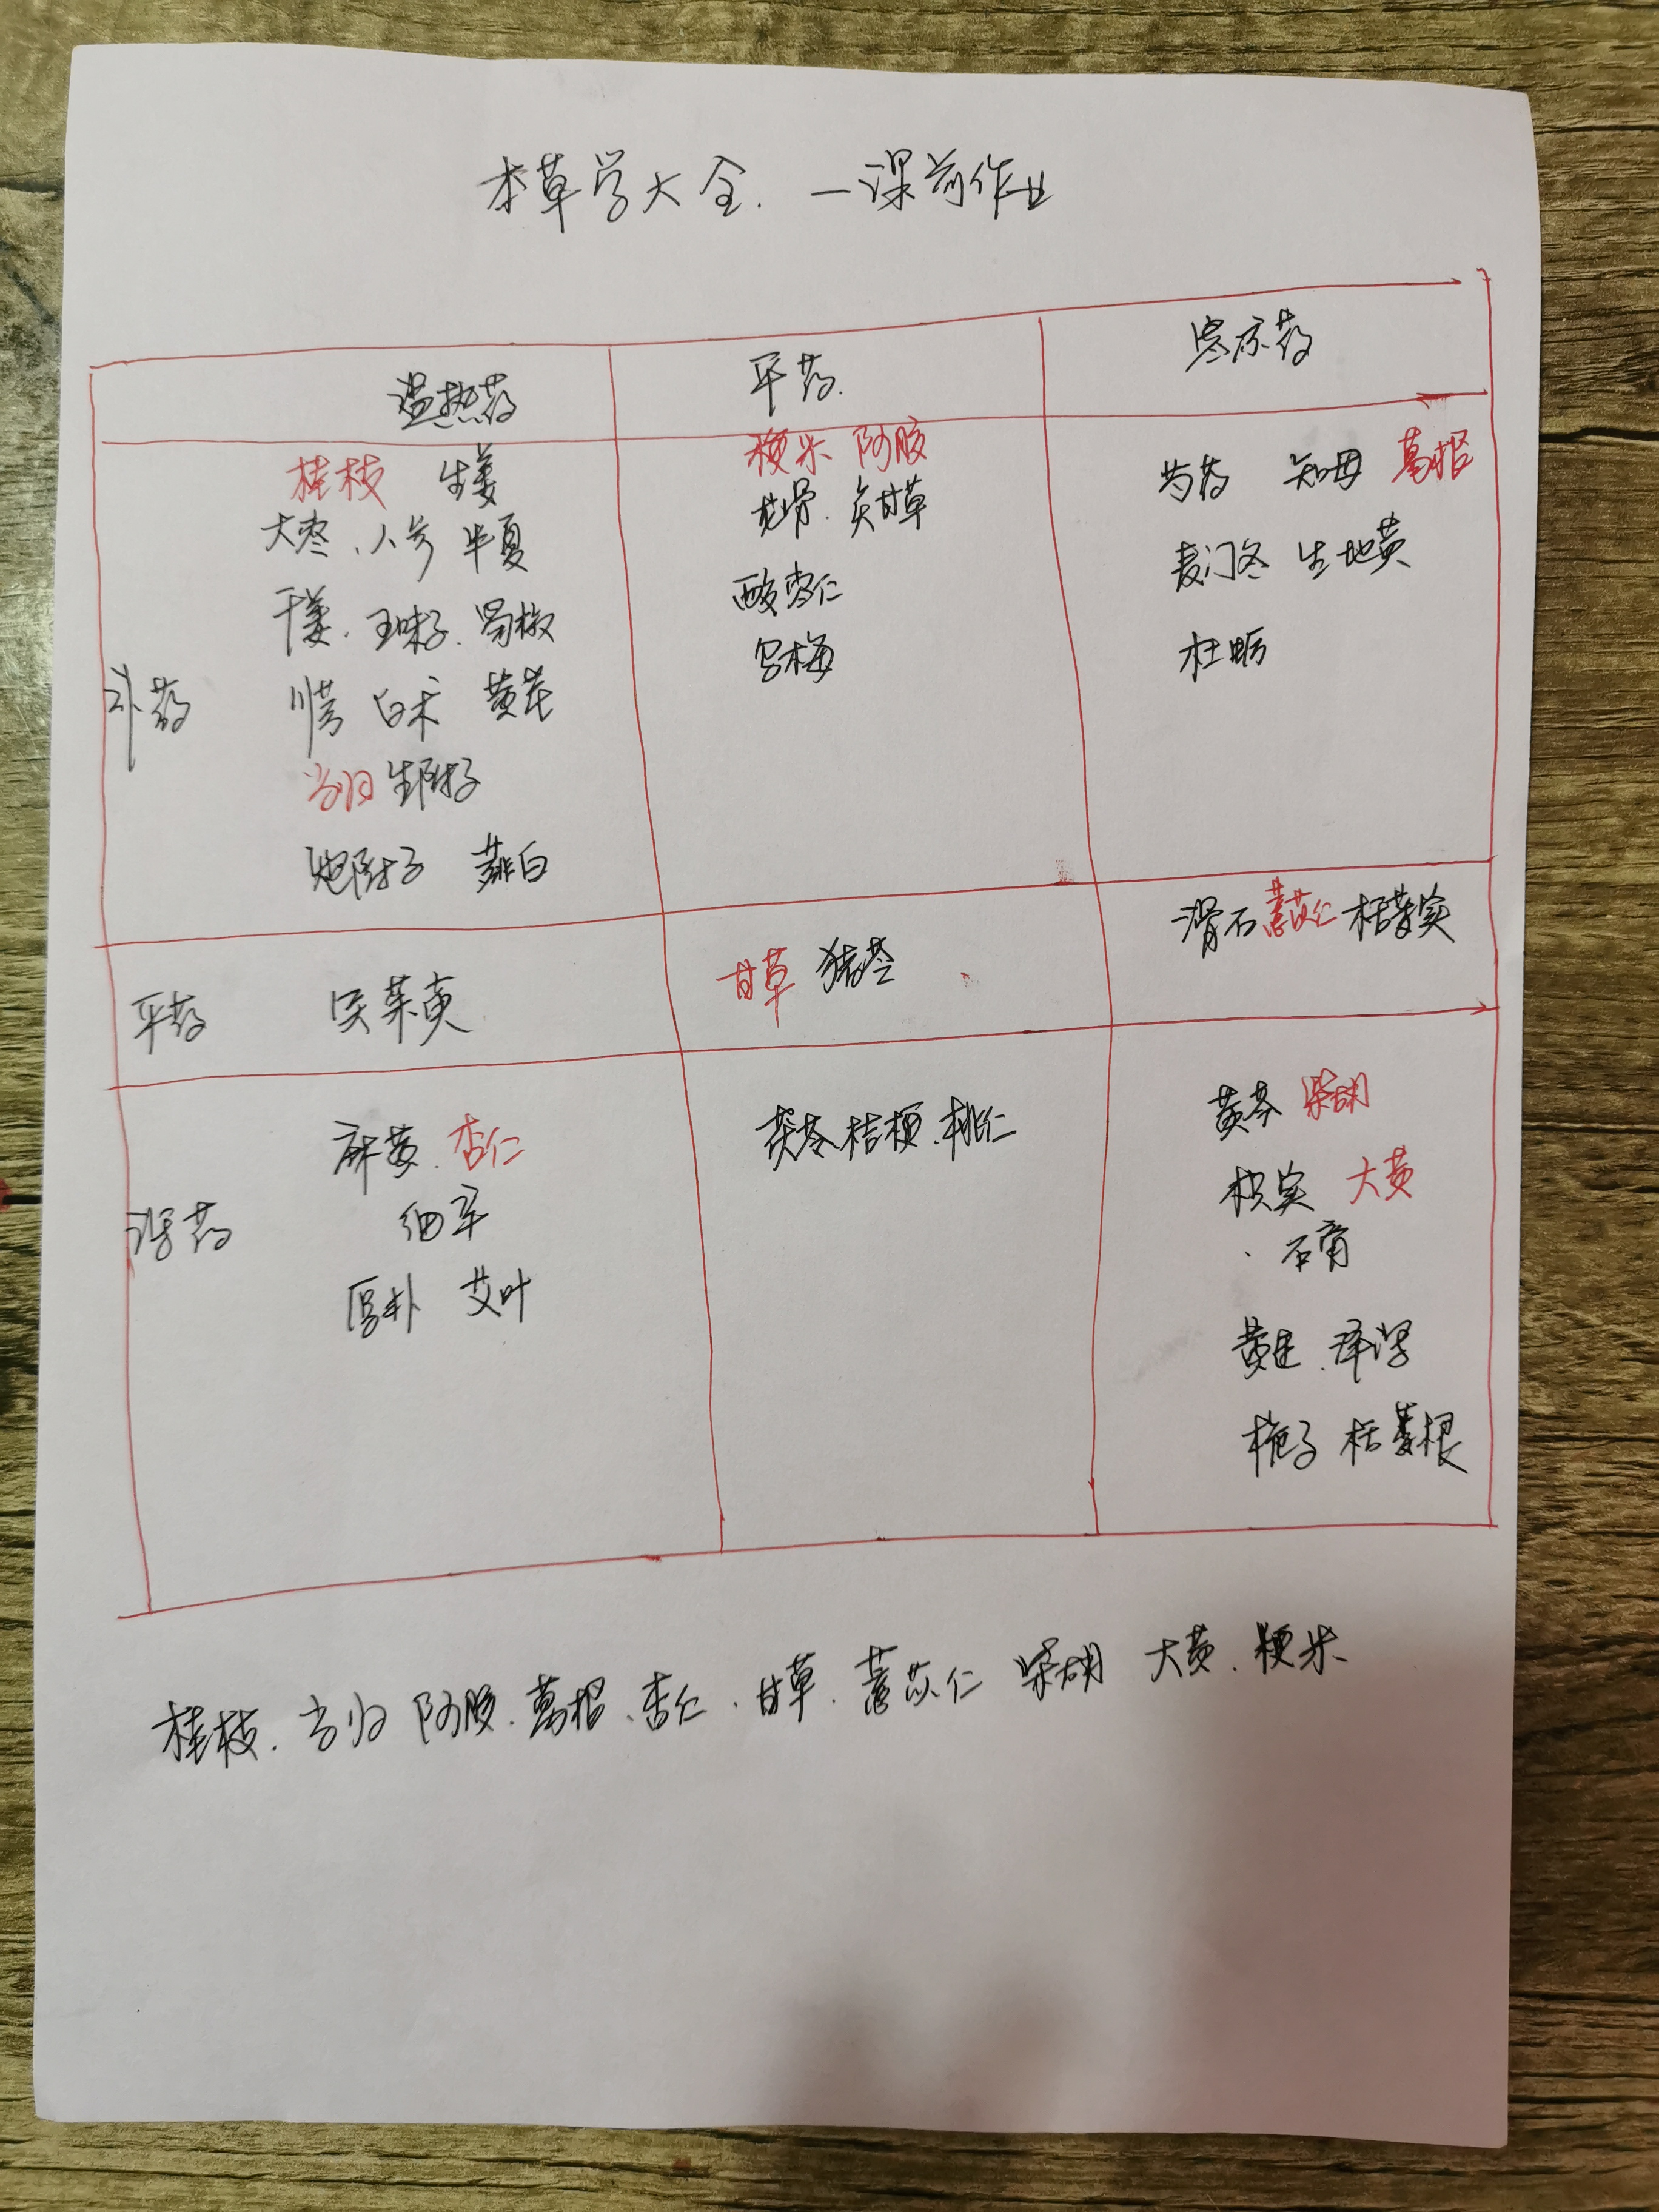 本草学大全.一课前作业
温热药 平药. 寒凉药
补药
桂枝 生姜
大枣、人参 半夏
干姜.五味子.蜀椒
川芎 白术 黄芪
当归 生附子
炮附子 薤白
粳米 阿胶
龙骨.炙甘草
酸枣仁
乌梅
芍药 知母 葛根
麦门冬 生地黄
牡蛎
平药 吴茱萸
甘草 猪苓
滑石 薏苡仁 栝蒌实
泻药
麻黄.杏仁
细辛
厚朴 艾叶
茯苓 桔梗.桃仁
黄芩 柴胡
枳实 大黄
石膏
黄连.泽泻
栀子 栝蒌根
桂枝.当归 阿胶.葛根、杏仁.甘草.薏苡仁 柴胡 大黄.粳米